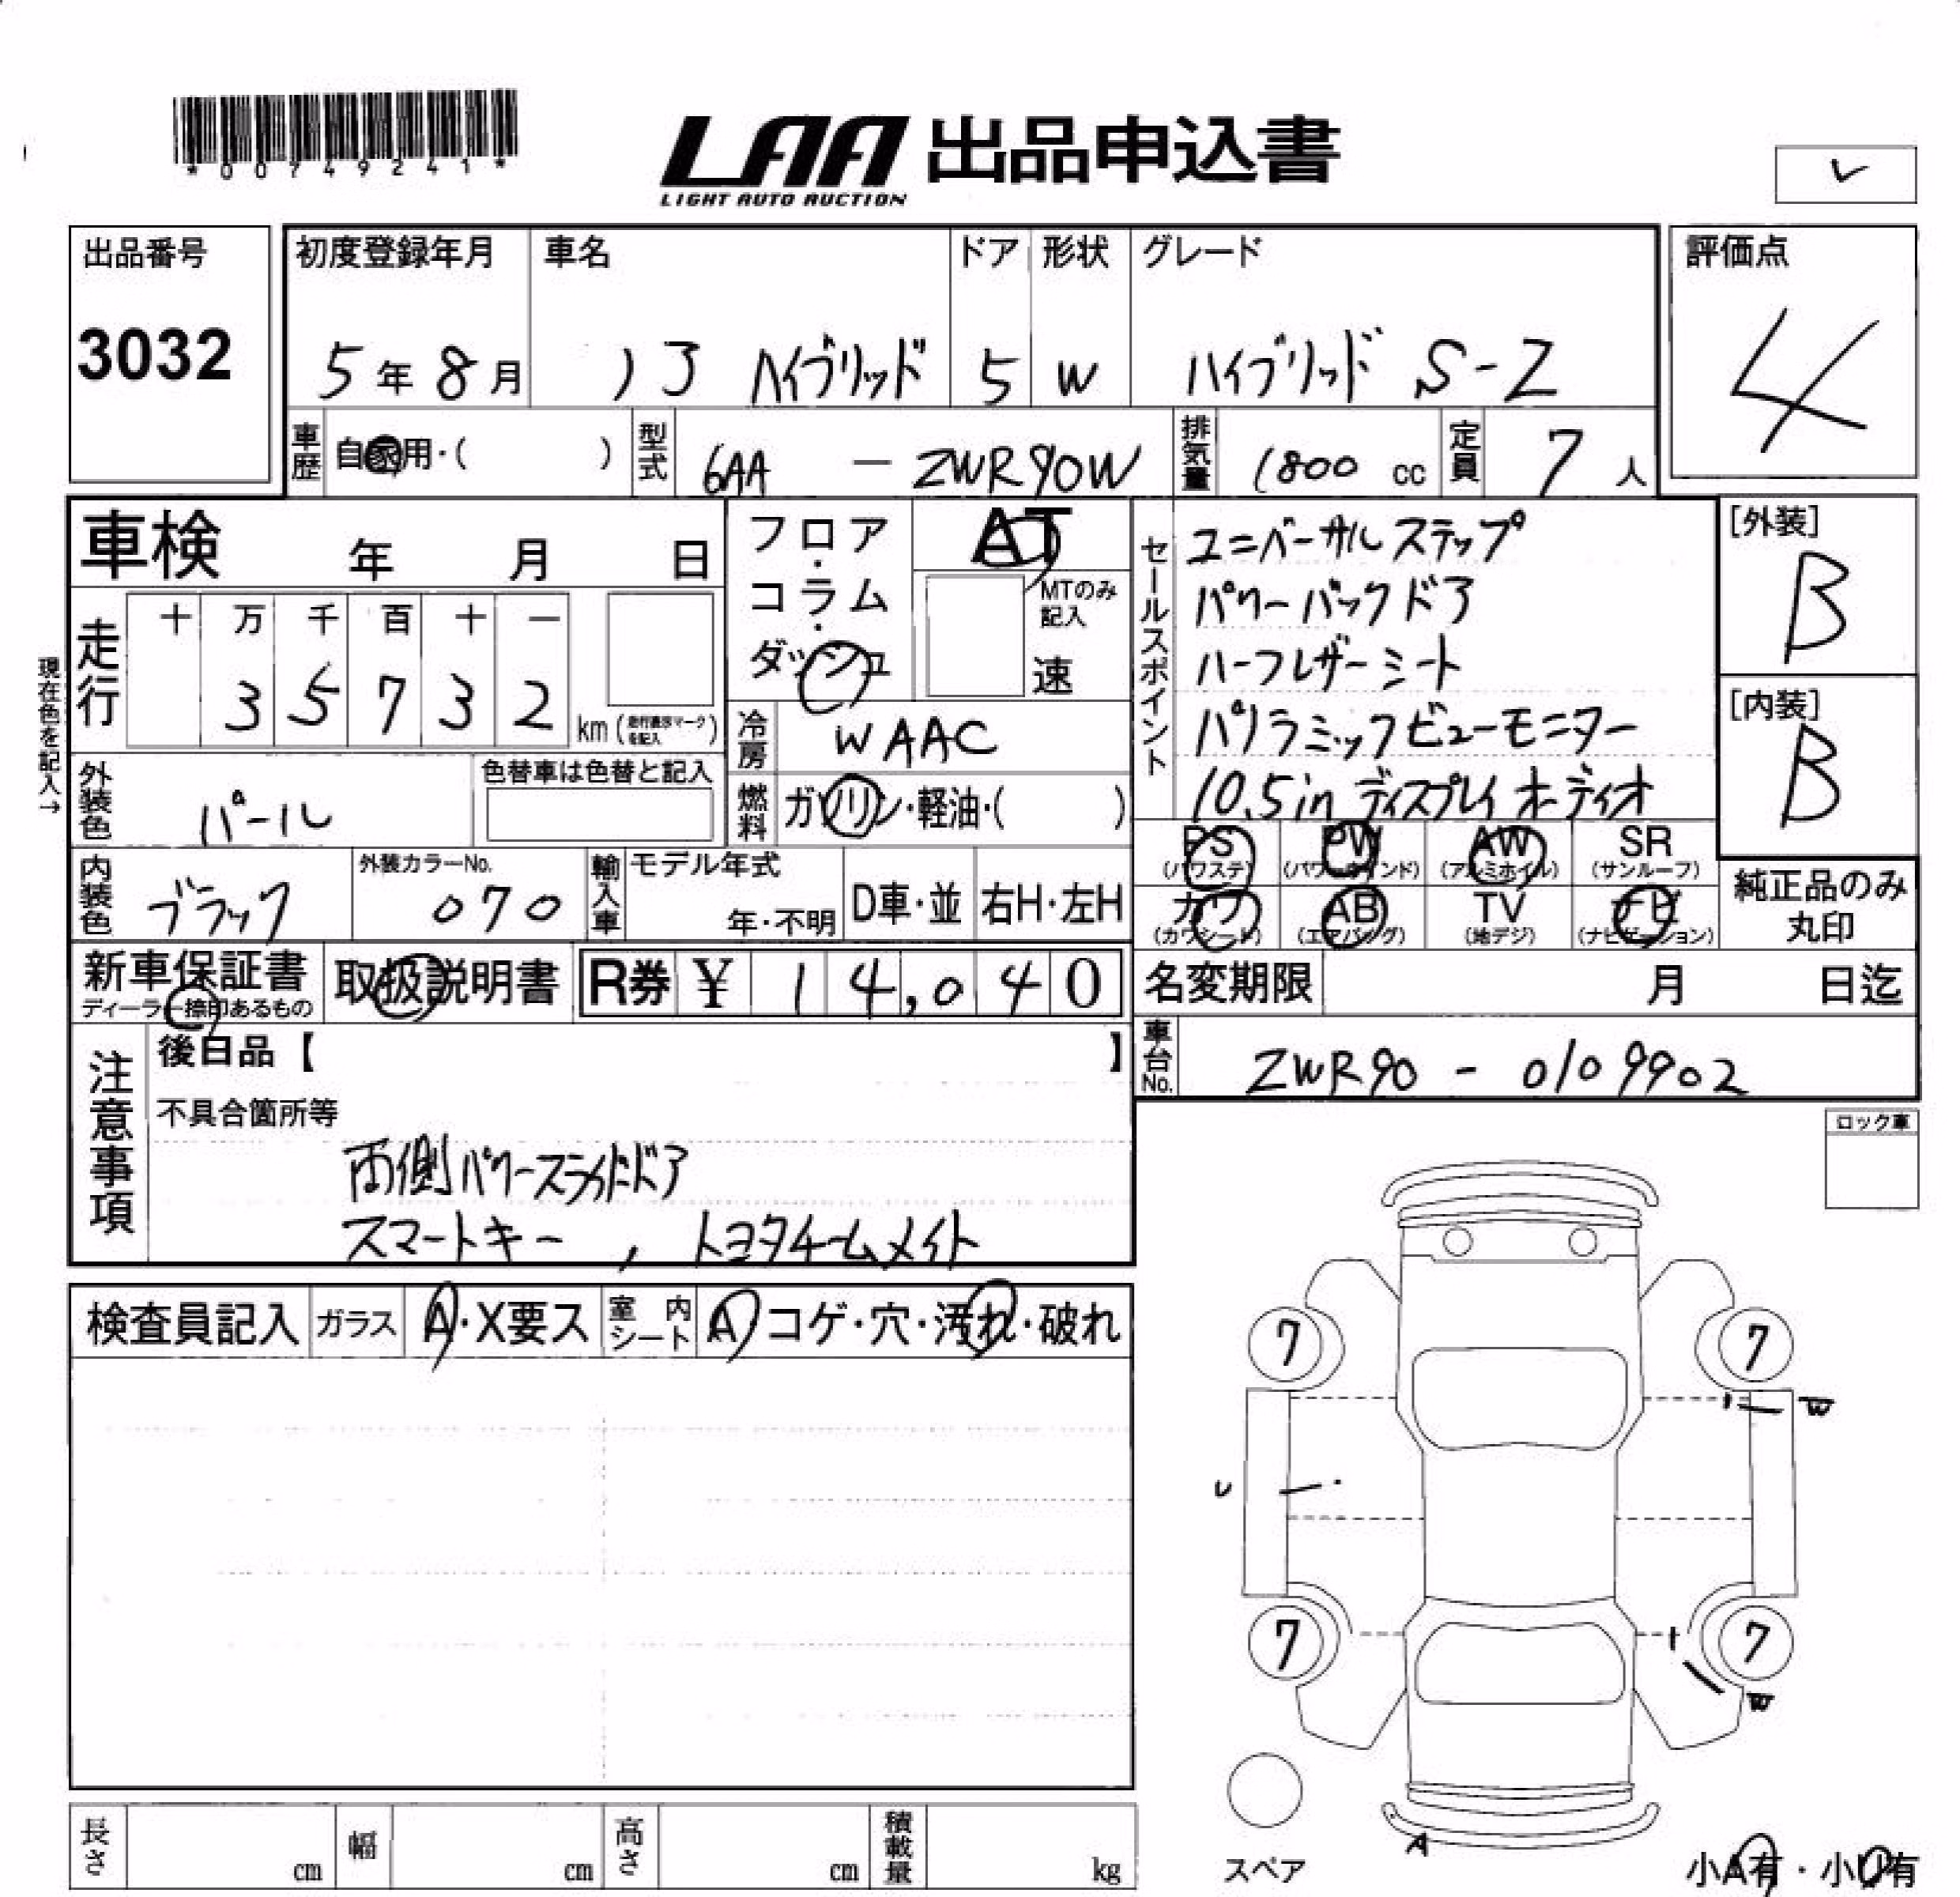 *00749241*
LAA 出品申込書
LIGHT AUTO AUCTION
レ
出品番号
3032
初度登録年月 車名 ドア 形状 グレード
5年8月 ノア ハイブリッド 5 W ハイブリッド S-Z
評価点
4
車歴 自家用・( ) 型式 6AA - ZWR90W 排気量 1800 cc 定員 7人
車検 年 月 日
フロア・コラム・ダッシュ
AT
MTのみ記入
速
現在色を記入→
走行 十 万 千 百 十 一
3 5 7 3 2 km (走行表示マークを記入)
冷房 WAAC
外装色 パール
色替車は色替と記入
燃料 ガソリン・軽油・( )
セールスポイント
ユニバーサルステップ
パワーバックドア
ハーフレザーシート
パノラミックビューモニター
10.5in ディスプレイオーディオ
[外装]
B
[内装]
B
PS (パワステ) PW (パワーウインド) AW (アルミホイル) SR (サンルーフ)
カワ (カワシート) AB (エアバッグ) TV (地デジ) ナビ (ナビゲーション)
純正品のみ
丸印
内装色 ブラック 外装カラーNo. 070 輸入車 モデル年式 年・不明 D車・並 右H・左H
新車保証書
ディーラー捺印あるもの
取扱説明書 R券 ¥ 14,040
名変期限 月 日迄
車台No. ZWR90 - 0109902
注意事項
後日品【 】
不具合箇所等
両側パワースライドドア
スマートキー , トヨタチームメイト
ロック車
検査員記入 ガラス A・X要ス 室内シート A コゲ・穴・汚れ・破れ
7 7
W
U
7 7
W
A
スペア
小A有・小U有
長さ cm 幅 cm 高さ cm 積載量 kg